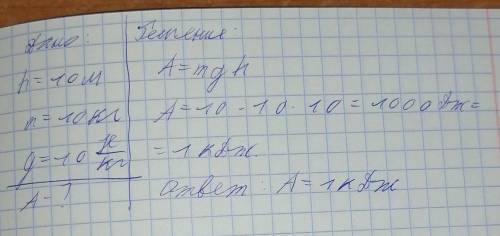 Дано:
h = 10 м
m = 10 кг
g = 10 Н/кг
A - ?
Решение:
A = mgh
A = 10 · 10 · 10 = 1000 Дж =
= 1 кДж.
ответ: A = 1 кДж